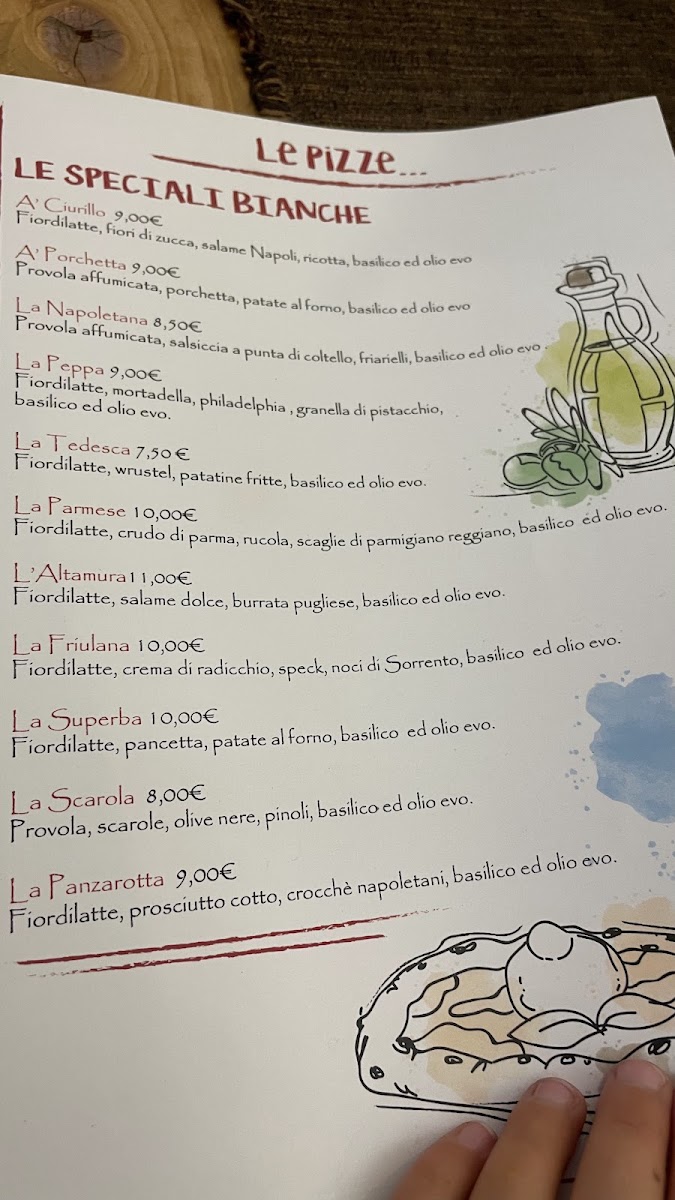 Le Pizze...
LE SPECIALI BIANCHE
A' Ciurillo 9,00€
Fiordilatte, fiori di zucca, salame Napoli, ricotta, basilico ed olio evo
A' Porchetta 9,00€
Provola affumicata, porchetta, patate al forno, basilico ed olio evo
La Napoletana 8,50€
Provola affumicata, salsiccia a punta di coltello, friarielli, basilico ed olio evo .
La Peppa 9,00€
Fiordilatte, mortadella, philadelphia , granella di pistacchio,
basilico ed olio evo.
La Tedesca 7,50 €
Fiordilatte, wrustel, patatine fritte, basilico ed olio evo.
La Parmese 10,00€
Fiordilatte, crudo di parma, rucola, scaglie di parmigiano reggiano, basilico ed olio evo.
L'Altamura 11,00€
Fiordilatte, salame dolce, burrata pugliese, basilico ed olio evo.
La Friulana 10,00€
Fiordilatte, crema di radicchio, speck, noci di Sorrento, basilico ed olio evo.
La Superba 10,00€
Fiordilatte, pancetta, patate al forno, basilico ed olio evo.
La Scarola 8,00€
Provola, scarole, olive nere, pinoli, basilico ed olio evo.
La Panzarotta 9,00€
Fiordilatte, prosciutto cotto, crocchè napoletani, basilico ed olio evo.